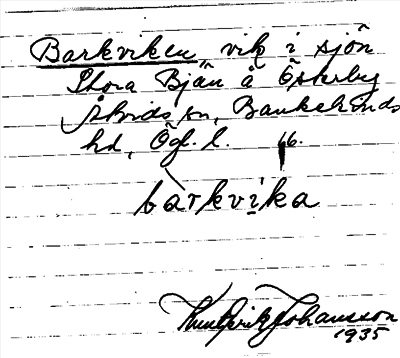 Barkviken, vik i sjön
Stora Bjän å Österby
Åtvids sn, Bankekinds
hd, Ögl. l. 66.
barkvika
Knut Erik Johansson
1935